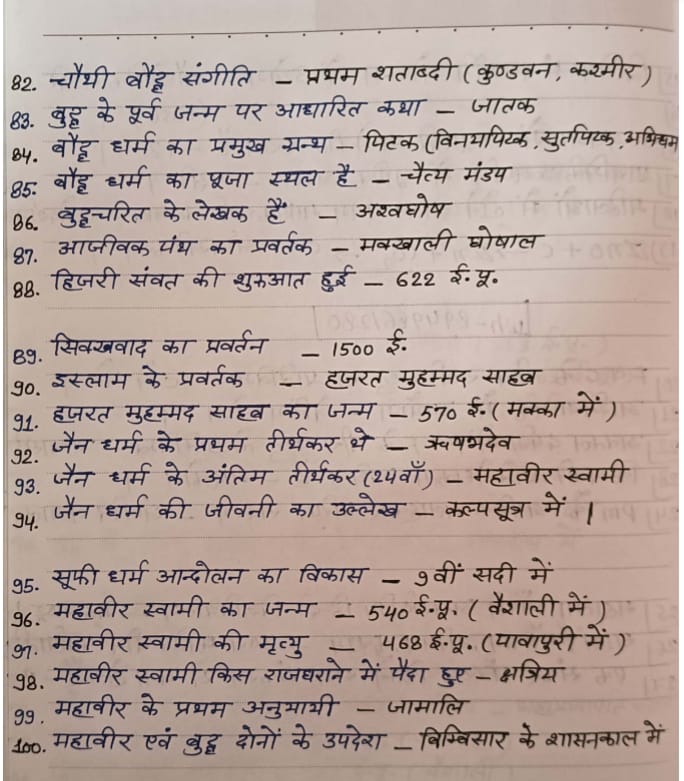 82. चौथी बौद्ध संगीति – प्रथम शताब्दी (कुण्डवन, कश्मीर)
83. बुद्ध के पूर्व जन्म पर आधारित कथा – जातक
84. बौद्ध धर्म का प्रमुख ग्रन्थ – पिटक (विनयपिटक, सुतपिटक, अभिधम
85. बौद्ध धर्म का पूजा स्थल है – चैत्य मंडप
86. बुद्धचरित के लेखक हैं – अश्वघोष
87. आजीवक पंथ का प्रवर्तक – मक्खाली घोषाल
88. हिजरी संवत की शुरुआत हुई – 622 ई.पू.
89. सिक्खवाद का प्रवर्तन – 1500 ई.
90. इस्लाम के प्रवर्तक – हजरत मुहम्मद साहब
91. हजरत मुहम्मद साहब का जन्म – 570 ई. (मक्का में)
92. जैन धर्म के प्रथम तीर्थकर थे – ऋषभदेव
93. जैन धर्म के अंतिम तीर्थकर (24वाँ) – महावीर स्वामी
94. जैन धर्म की जीवनी का उल्लेख – कल्पसूत्र में |
95. सूफी धर्म आन्दोलन का विकास – 9वीं सदी में
96. महावीर स्वामी का जन्म – 540 ई.पू. (वैशाली में)
97. महावीर स्वामी की मृत्यु – 468 ई.पू. (पावापुरी में)
98. महावीर स्वामी किस राजघराने में पैदा हुए – क्षत्रिय
99. महावीर के प्रथम अनुयायी – जामालि
100. महावीर एवं बुद्ध दोनों के उपदेश – बिम्बिसार के शासनकाल में